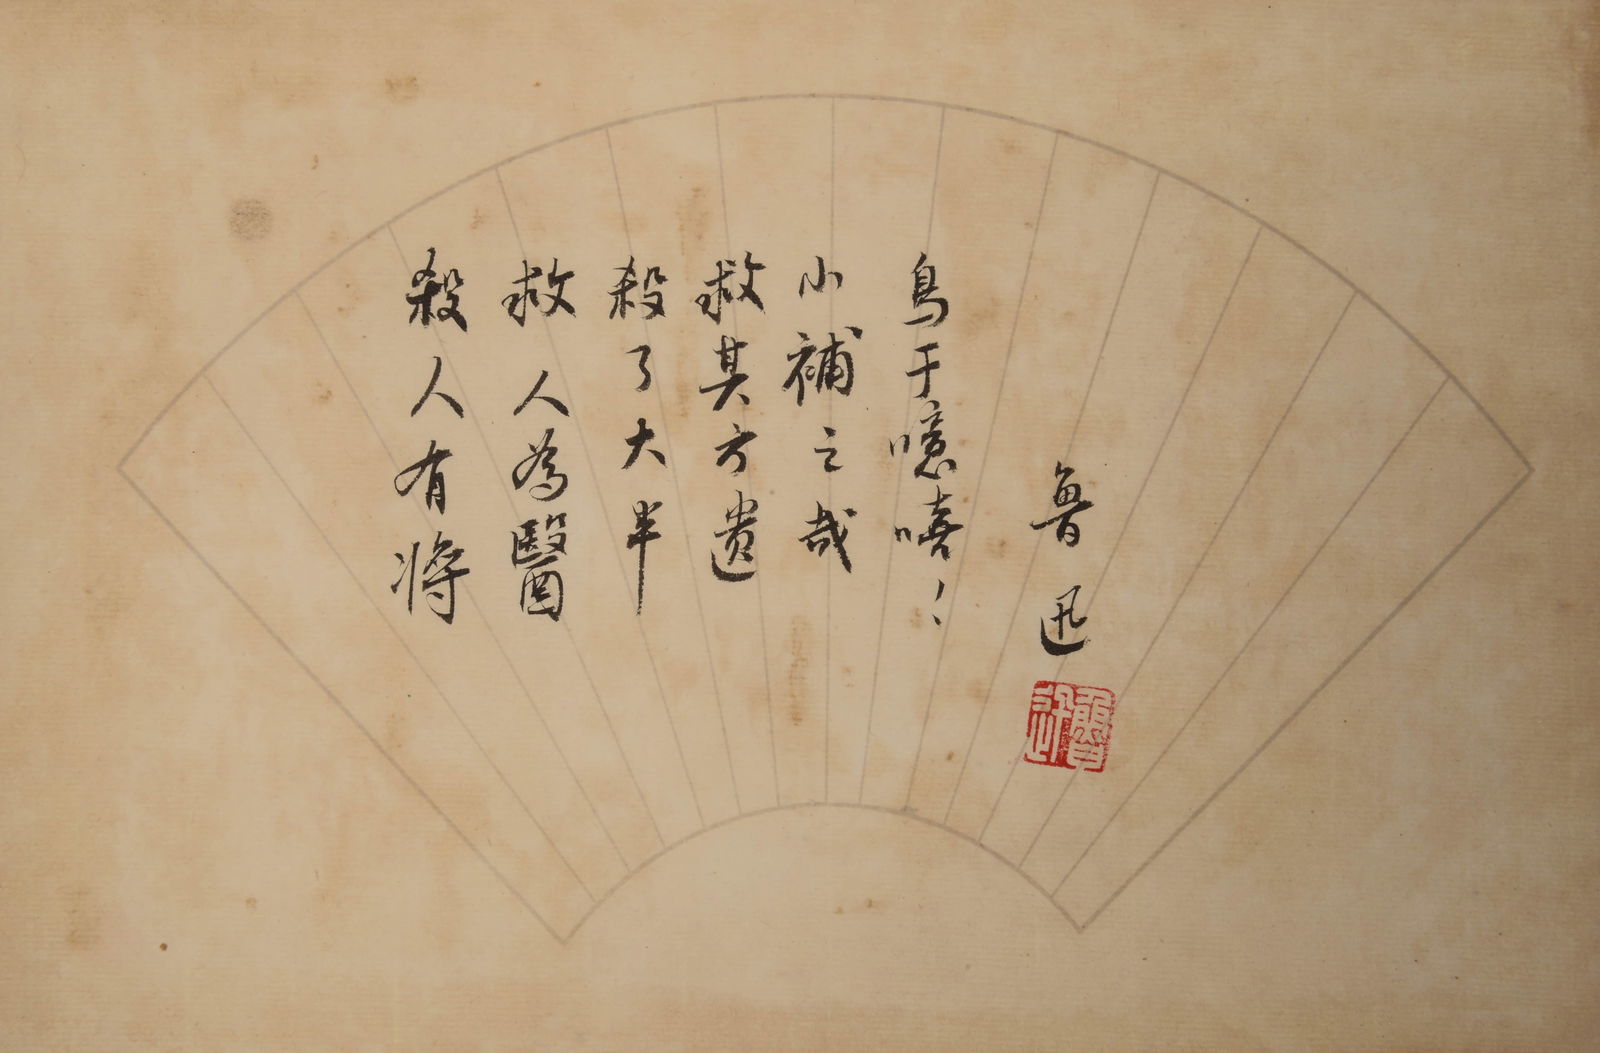 殺人有將
救人為醫
殺了大半
救其孑遺
小補之哉
烏乎噫嘻！
魯迅
魯迅